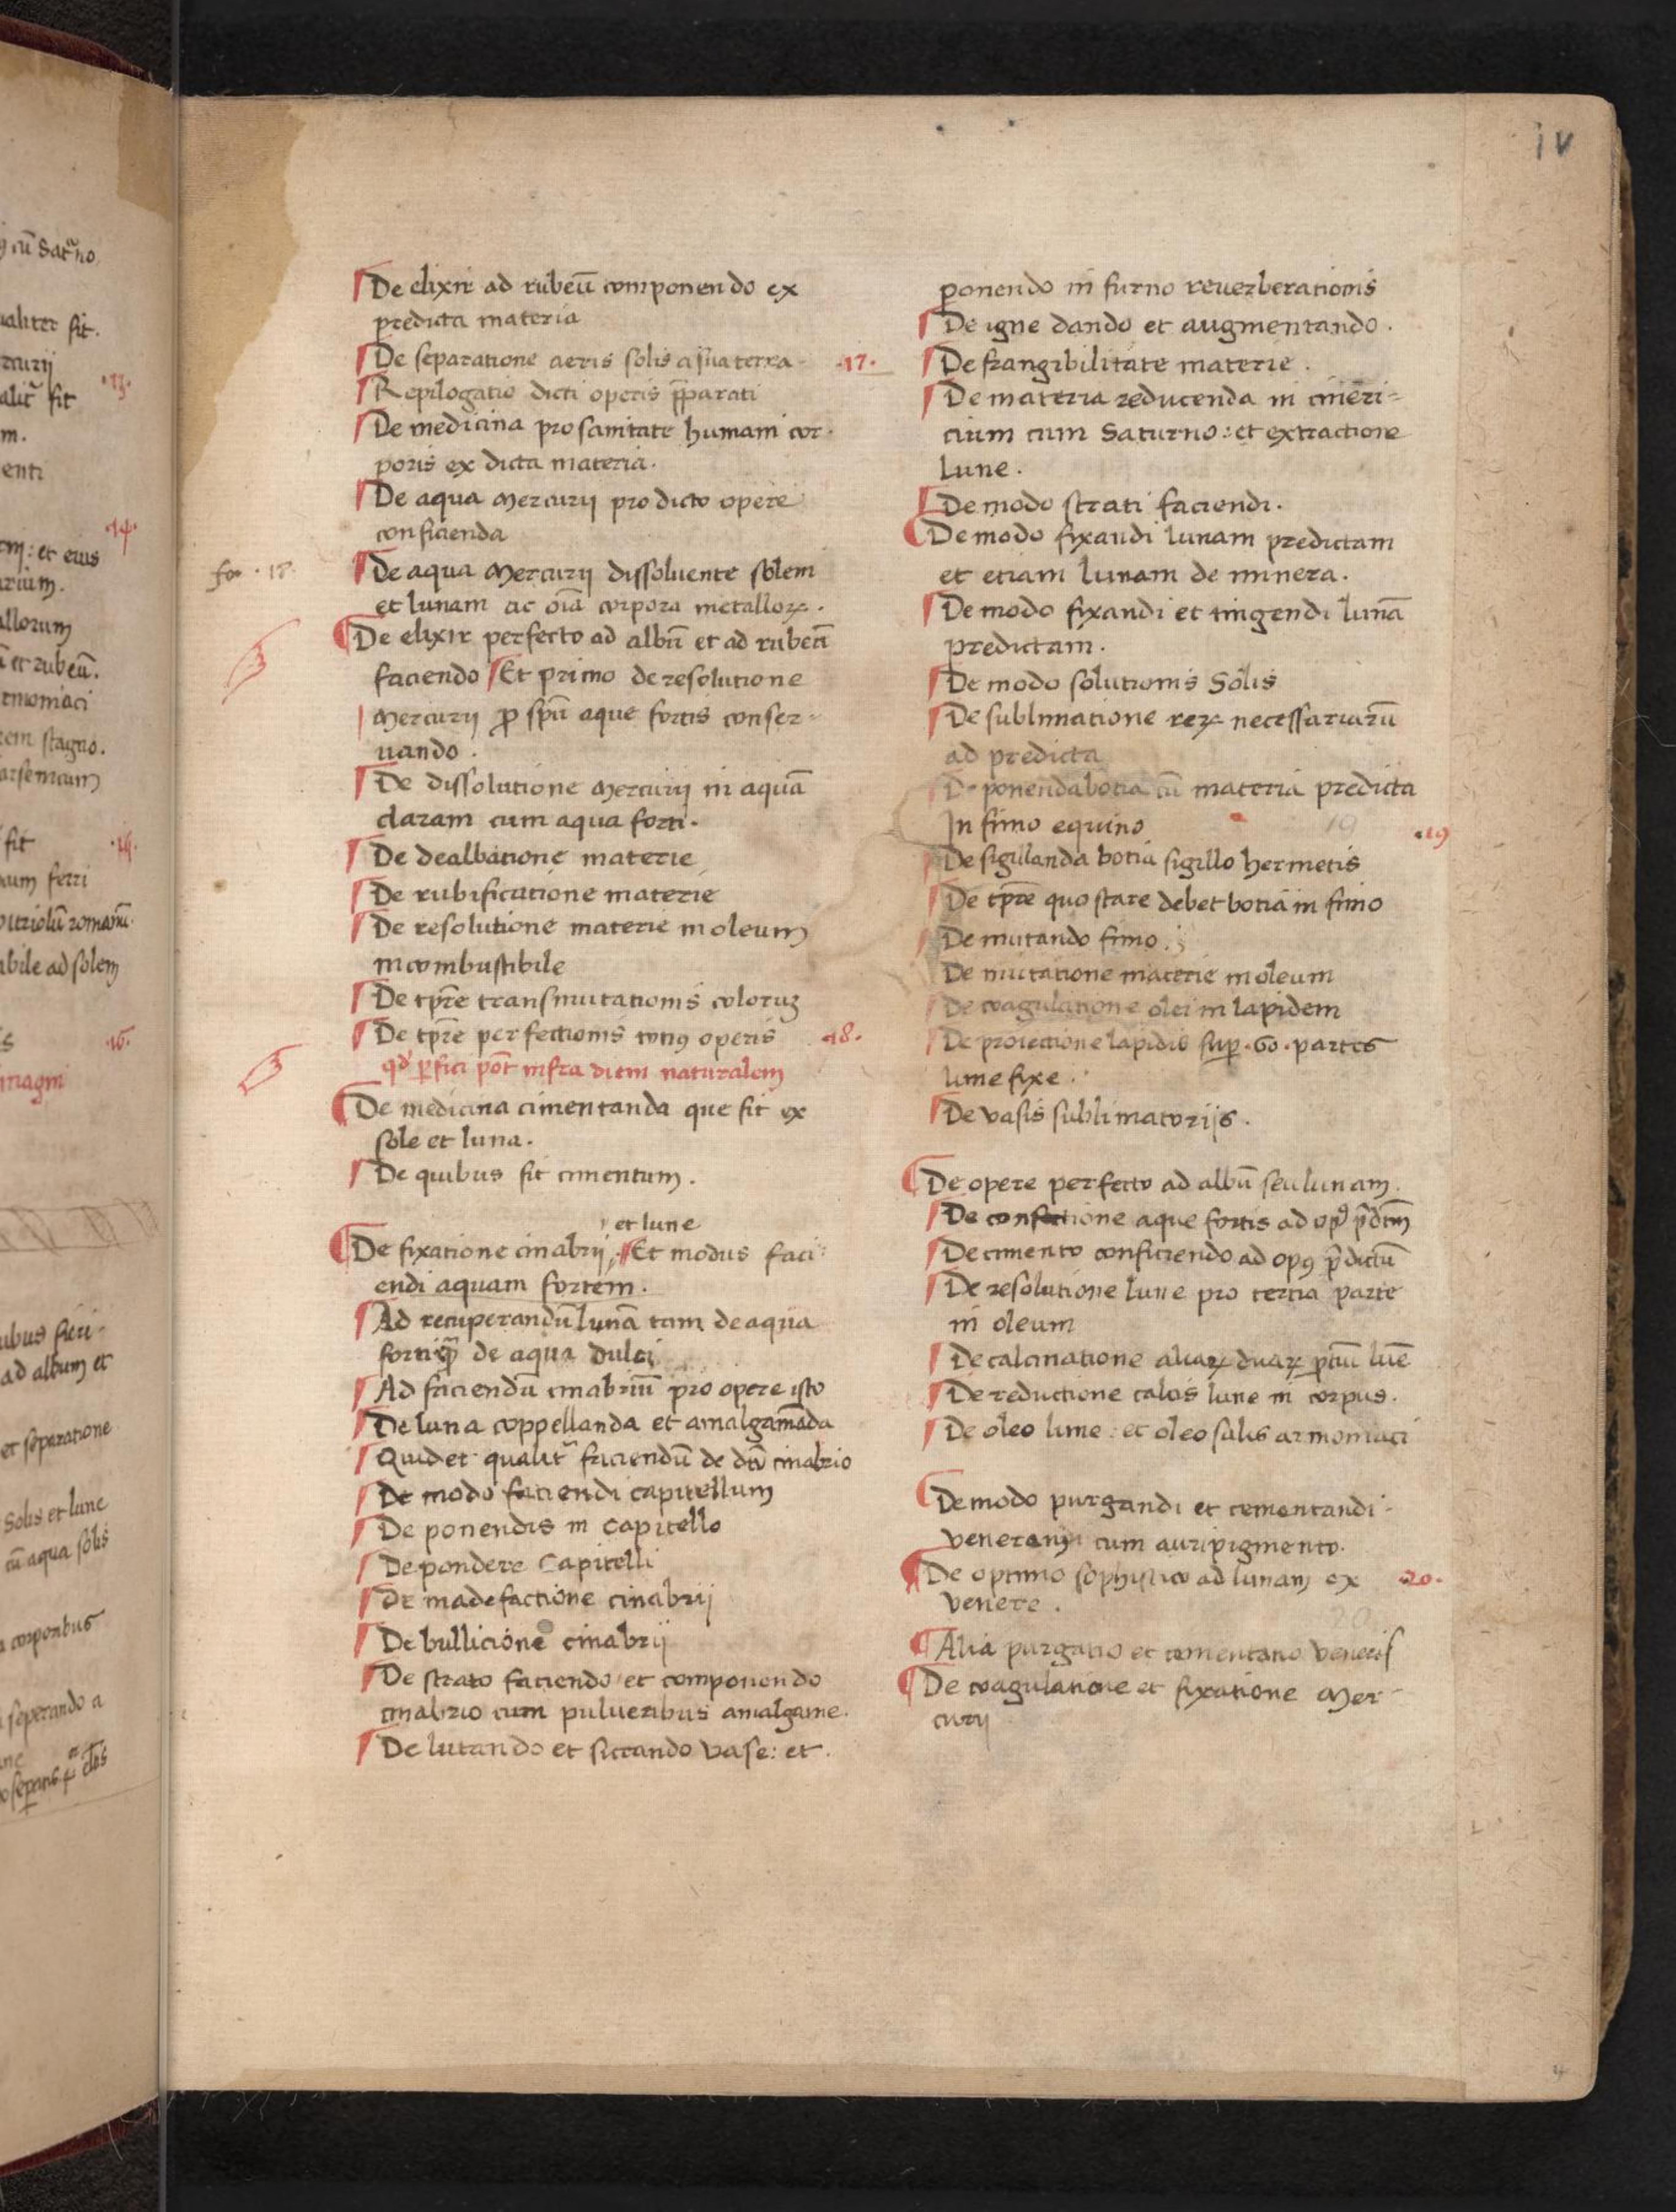 iv
De elixir ad rubeū componendo ex
predicta materia
De separatione aeris solis a sua terra .17.
Repilogatio dicti operis p̄parati
De medicina pro sanitate humani cor-
poris ex dicta materia.
De aqua Mercurij pro dicto opere
conficienda
De aqua Mercurij dissoluente solem
et lunam ac oīa corpora metalloꝝ.
De elixir perfecto ad albū et ad rubeū
faciendo Et primo de resolutione
Mercurij ꝓ spū aque fortis conser-
uando.
De dissolutione Mercurij in aquā
claram cum aqua forti.
De dealbatione materie
De rubificatione materie
De resolutione materie in oleum
incombustibile
De tp̄re transmutationis coloruꝫ
De tp̄re perfectionis totiꝰ operis .18.
qd' ꝑfici pōt infra diem naturalem
De medicina cimentanda que fit ex
sole et luna.
De quibus fit cimentum.
et lune
De fixatione cinabrij, Et modus faci-
endi aquam fortem.
Ad recuperandū lunā tam de aqua
forti qᷓ de aqua dulci
Ad faciendū cinabriū pro opere isto
De luna coppellanda et amalgamāda
Quid et qualit̄ faciendū de dc̄o cinabrio
De modo faciendi capitellum
De ponendis in capitello
De pondere Capitelli
De madefactione cinabrij
De bullicione cinabrij
De strato faciendo et componendo
cinabrio cum pulueribus amalgame.
De lutando et siccando vase: et
ponendo in furno reuerberationis
De igne dando et augmentando.
De frangibilitate materie.
De materia reducenda in cineri-
cium cum Saturno: et extractione
Lune.
De modo strati faciendi.
De modo fixandi lunam predictam
et etiam lunam de minera.
De modo fixandi et tingendi lunā
predictam.
De modo solutionis Solis
De sublimatione reꝝ necessariarū
ad predicta
De ponenda botia cū materia predicta
In fimo equino .19
19
De sigillanda botia sigillo hermetis
De tp̄re quo stare debet botia in fimo
De mutando fimo.
De mutatione materie in oleum
De coagulatione olei in lapidem
De proiectione lapidis sup̄ .60. partes
lune fixe.
De vasis sublimatorijs.
De opere perfecto ad albū seu lunam.
De confectione aque fortis ad opꝰ p̄dctm̄
De cimento conficiendo ad opꝰ p̄dictū
De resolutione lune pro tertia parte
in oleum
De calcinatione aliaꝝ duaꝝ ptiū lūe
De reductione calcis lune in corpus.
De oleo lune: et oleo salis armoniaci
De modo purgandi et cementandi
venerem cum auripigmento.
De optimo sophistico ad lunam ex .20.
venere.
20
Alia purgatio et cementatio veneris
De coagulatione et fixatione Mer-
curij